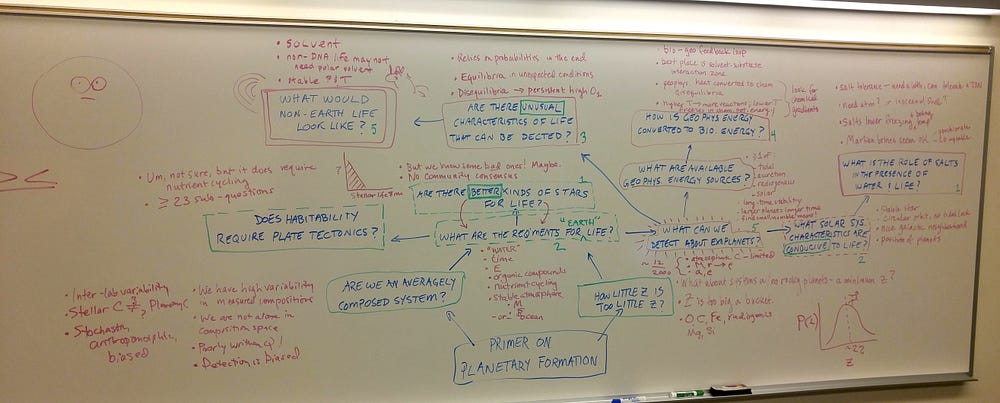 • SOLVENT
• non-DNA life may not
need polar solvent
• stable P; T
WHAT WOULD
NON-EARTH LIFE
LOOK LIKE? 5
• Relies on probabilities in the end
• Equilibria in unexpected conditions
• Disequilibria → persistent high O2
ARE THERE UNUSUAL
CHARACTERISTICS OF LIFE
THAT CAN BE DECTED? 3
• bio-geo feedback loop
• best place is solvent-substrate
interaction zone
• geophys. heat converted to chem
disequilibria
• higher T → more reactions; lower T
look for
chemical
gradients
HOW IS GEOPHYS ENERGY
CONVERTED TO BIO. ENERGY? 4
• salt tolerance - need both, can
• need atm?
• Salts lower freezing temp
• Martian brines seem OK
WHAT IS THE ROLE OF SALTS
IN THE PRESENCE OF
WATER & LIFE? 1
• Um, not sure, but it does require
nutrient cycling
• ≥ 23 sub-questions
DOES HABITABILITY
REQUIRE PLATE TECTONICS?
?
Stellar lifetime
• But we know some bad ones! Maybe.
• No community consensus
1
ARE THERE BETTER KINDS OF STARS
FOR LIFE?
"EARTH"
WHAT ARE THE REQMENTS FOR LIFE?
2
• "WATER"
• time
• E
• organic compounds
• nutrient cycling
• stable atmosphere
-or- ocean
WHAT ARE AVAILABLE
GEOPHYS. ENERGY SOURCES?
• tidal
• accretion
• radiogenic
• solar
• long-term stability
• larger planets longer time
WHAT CAN WE 5
DETECT ABOUT EXPLANETS?
~ 12
2000
• atmospheric C-limited
• M, r → ρ
• a, e
WHAT SOLAR SYS.
CHARACTERISTICS ARE
CONDUCIVE TO LIFE?
2
• Stable star
• Circular orbit, no tidal lock
• nice galactic neighborhood
• position of planets
ARE WE AN AVERAGELY
COMPOSED SYSTEM?
HOW LITTLE Z IS
TOO LITTLE Z?
• What about systems w no rocky planets - a minimum Z?
• Z is too big a bucket.
• O, C, Fe, radiogenics
Mg, Si
P(Z)
~22
Z
• Inter-lab variability
• Stellar C ≟ Planetary C
• Stochastic,
anthropomorphic,
biased
• We have high variability
in measured compositions
• We are not alone in
composition space
• Poorly written Q!
• Detection is biased
PRIMER ON
PLANETARY FORMATION